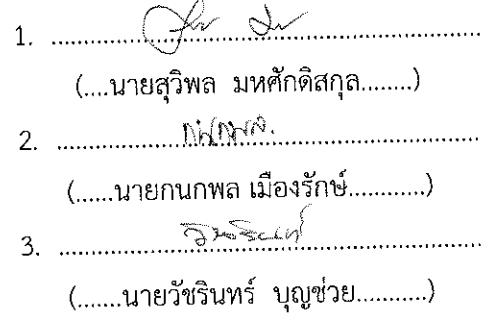 1. ........................................................
(....นายสุวิพล มหศักดิสกุล........)
2. กนกพล.
(......นายกนกพล เมืองรักษ์............)
3. วัชรินทร์
(.......นายวัชรินทร์ บุญช่วย...........)